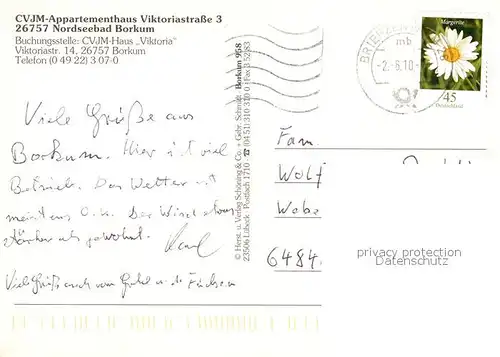 CVJM-Appartementhaus Viktoriastraße 3
26757 Nordseebad Borkum
Buchungsstelle: CVJM-Haus „Viktoria"
Viktoriastr. 14, 26757 Borkum
Telefon (0 49 22) 3 07-0
Viele Grüße aus
Borkum. Hier ist viel
Betrieb. Das Wetter ist
meistens O.K. Der Wind etwas
stärker als gewohnt.
Karl
Viel Grüße auch von
© Herst. u. Verlag Schöning & Co. + Gebr. Schmidt
Borkum 958
23506 Lübeck · Postfach 1710
BRIEFZENTRUM
mb
-2.-6.10
Margerite
45
Deutschland
Fam.
Wolf
Webe
6484
privacy protection
Datenschutz